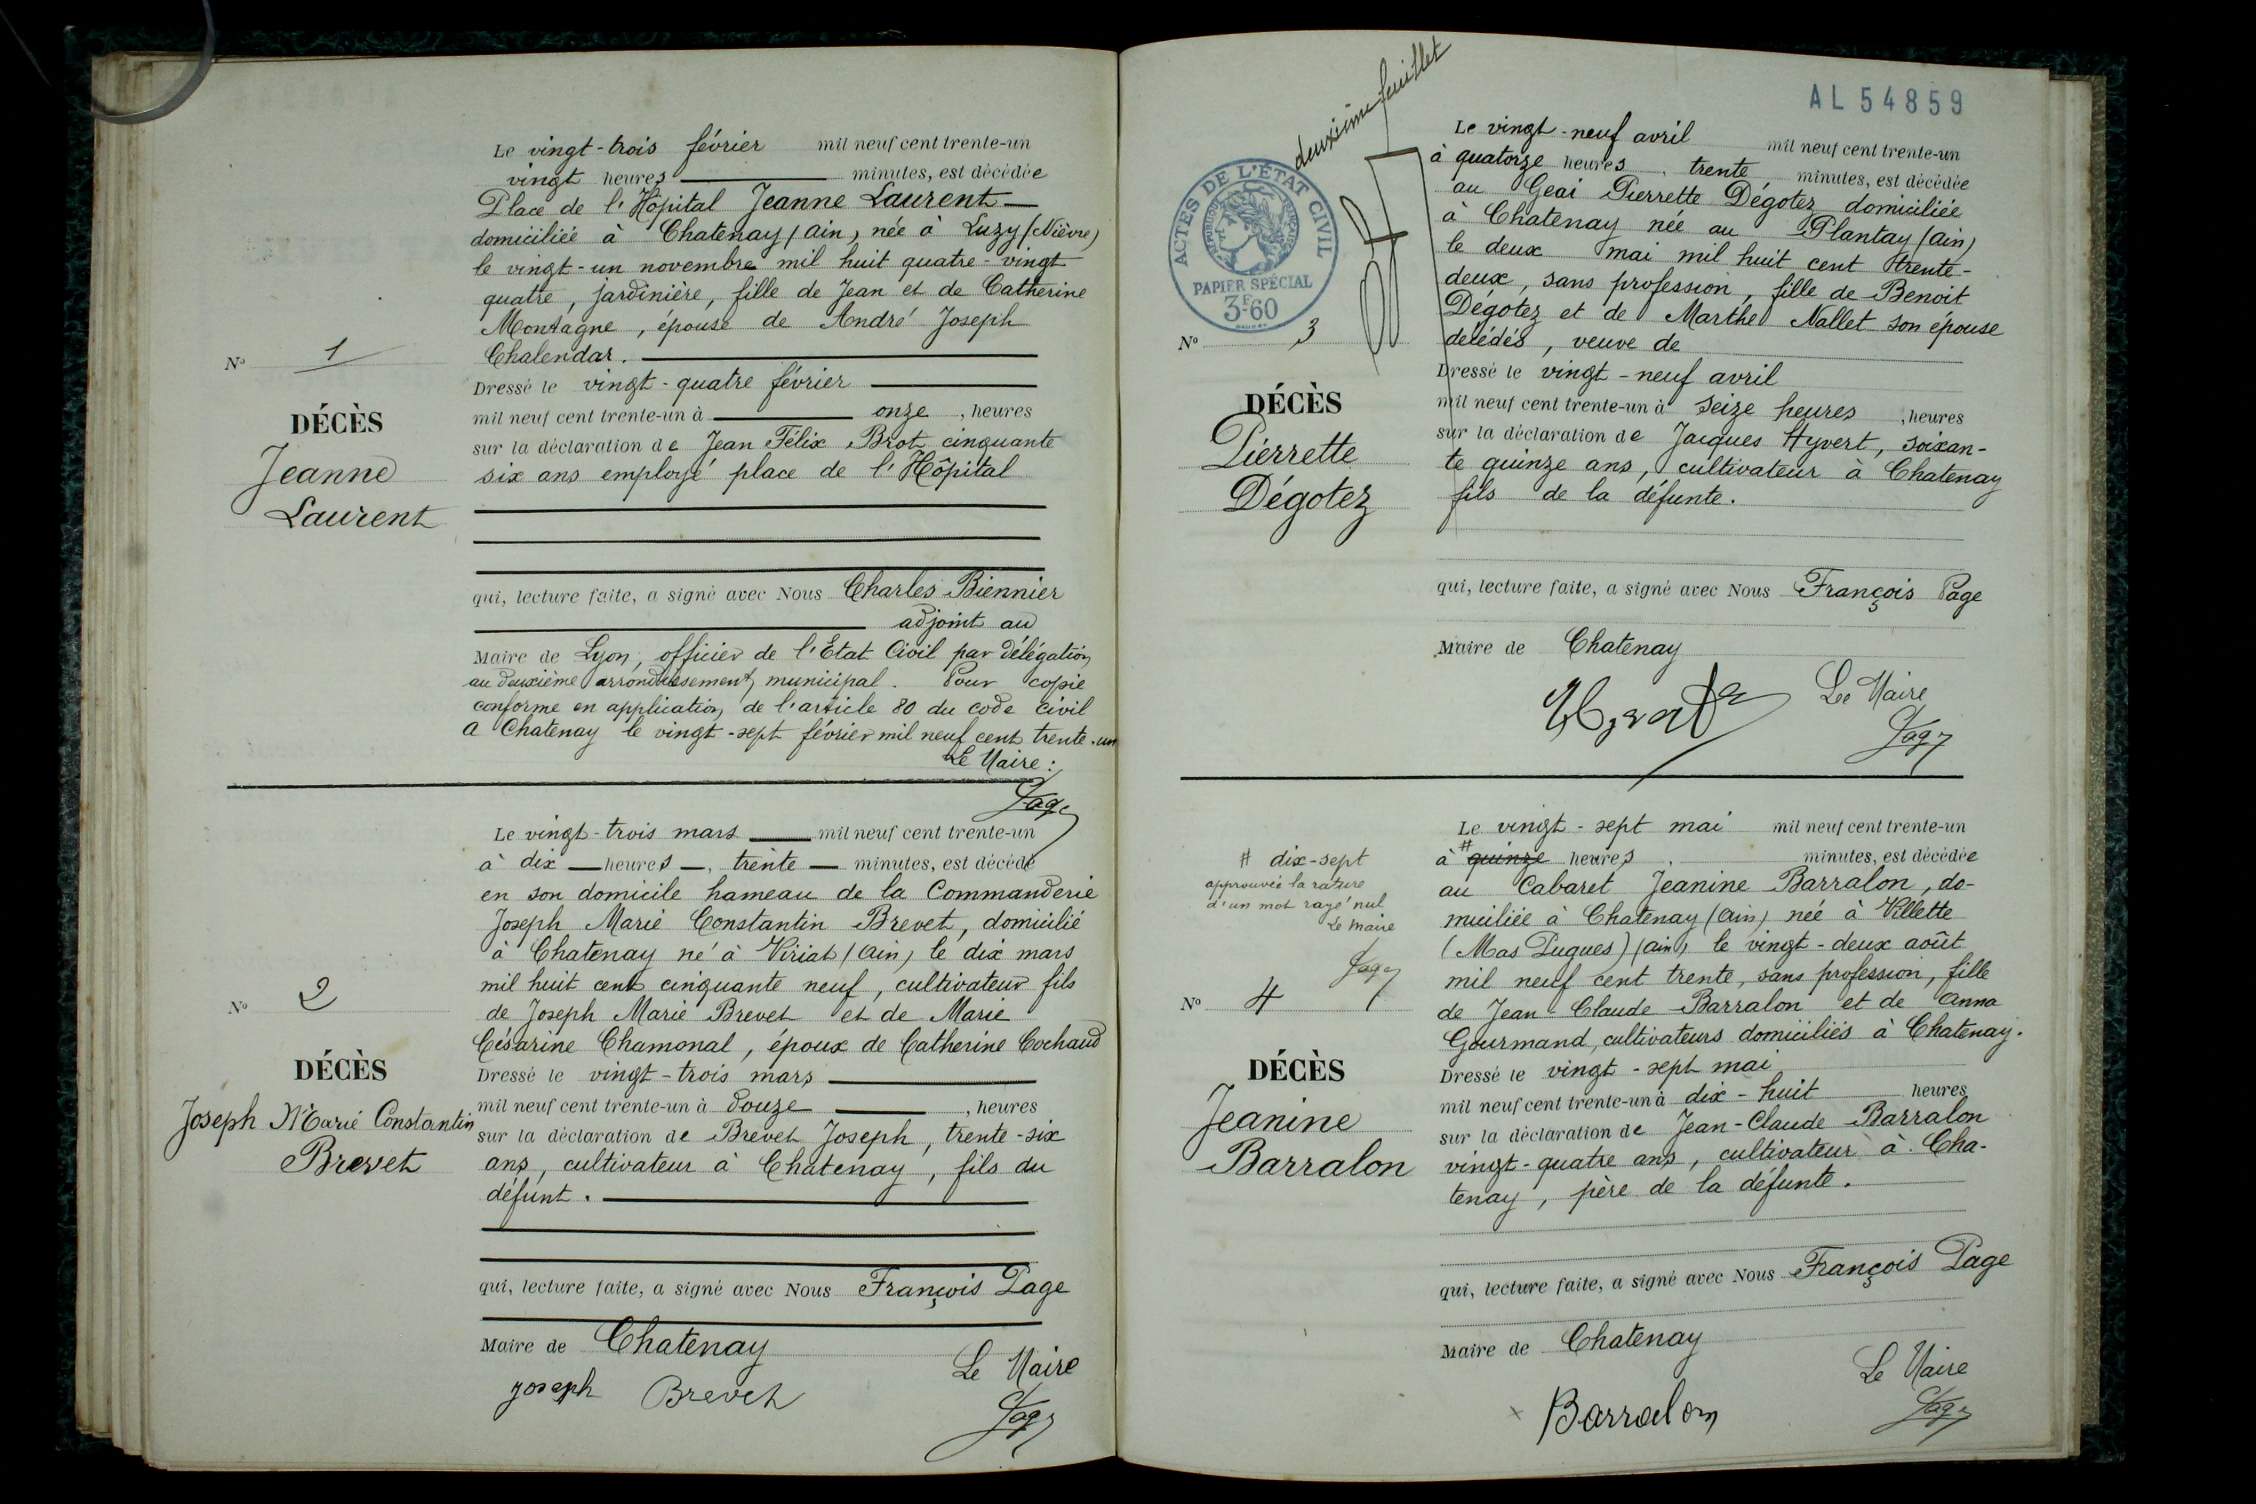 Le vingt-trois février mil neuf cent trente-un
vingt heures minutes, est décédée
Place de l'Hôpital Jeanne Laurent
domiciliée à Chatenay (Ain), née à Luzy (Nièvre)
le vingt-un novembre mil huit quatre-vingt
quatre, jardinière, fille de Jean et de Catherine
Montagne, épouse de André Joseph
Chalendar.
Dressé le vingt-quatre février
mil neuf cent trente-un à onze, heures
sur la déclaration de Jean Félix Brot cinquante
six ans employé place de l'Hôpital
qui, lecture faite, a signé avec Nous Charles Biennier
adjoint au
Maire de Lyon, officier de l'Etat Civil par délégation
au deuxième arrondissement municipal. Pour copie
conforme en application de l'article 80 du code civil
A Chatenay le vingt-sept février mil neuf cent trente-un
Le Maire :
Page
No 1
DÉCÈS
Jeanne
Laurent
Le vingt-trois mars mil neuf cent trente-un
à dix heures, trente minutes, est décédé
en son domicile hameau de la Commanderie
Joseph Marie Constantin Brevet, domicilié
à Chatenay né à Viriat (Ain) le dix mars
mil huit cent cinquante neuf, cultivateur fils
de Joseph Marie Brevet et de Marie
Césarine Chamonal, époux de Catherine Cochaud
Dressé le vingt-trois mars
mil neuf cent trente-un à douze, heures
sur la déclaration de Brevet Joseph, trente-six
ans, cultivateur à Chatenay, fils du
défunt.
qui, lecture faite, a signé avec Nous François Page
Maire de Chatenay
Le Maire
Joseph Brevet
Page
No 2
DÉCÈS
Joseph Marie Constantin
Brevet
deuxième feuillet
AL 54859
ACTES DE L'ÉTAT CIVIL
RÉPUBLIQUE FRANÇAISE
PAPIER SPÉCIAL
3F60
Le vingt-neuf avril mil neuf cent trente-un
à quatorze heures, trente minutes, est décédée
au Geai Pierrette Dégotez domiciliée
à Chatenay née au Plantay (Ain)
le deux mai mil huit cent trente-
deux, sans profession, fille de Benoit
Dégotez et de Marthe Nallet son épouse
decédés, veuve de
Dressé le vingt-neuf avril
mil neuf cent trente-un à seize heures, heures
sur la déclaration de Jacques Hyvert, soixan-
te quinze ans, cultivateur à Chatenay
fils de la défunte.
qui, lecture faite, a signé avec Nous François Page
Maire de Chatenay
Le Maire
Page
No 3
DÉCÈS
Pierrette
Dégotez
Le vingt-sept mai mil neuf cent trente-un
à # quinze heures, minutes, est décédée
au Cabaret Jeanine Barralon, do-
miciliée à Chatenay (Ain) née à Villette
(Mas Pugues) (Ain) le vingt-deux août
mil neuf cent trente, sans profession, fille
de Jean-Claude Barralon et de Anna
Gourmand, cultivateurs domiciliés à Chatenay.
Dressé le vingt-sept mai
mil neuf cent trente-un à dix-huit heures
sur la déclaration de Jean-Claude Barralon
vingt-quatre ans, cultivateur à Cha-
tenay, père de la défunte.
qui, lecture faite, a signé avec Nous François Page
Maire de Chatenay
Le Maire
x Barralon
Page
# dix-sept
approuvée la rature
d'un mot rayé nul
Le Maire
Page
No 4
DÉCÈS
Jeanine
Barralon